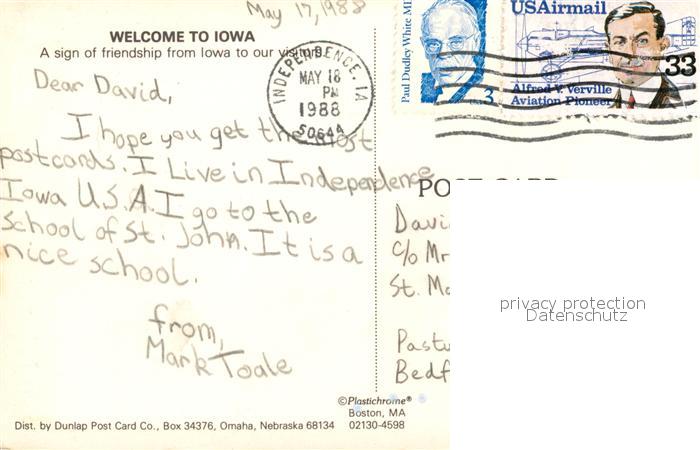 May 17, 1988
WELCOME TO IOWA
A sign of friendship from Iowa to our visitors
Dear David,
I hope you get the most
postcards. I Live in Independence
Iowa U.S.A. I go to the
School of St. John. It is a
nice school.
from,
Mark Toale
INDEPENDENCE, IA
MAY 18
PM
1988
50644
Paul Dudley White MD
3
USAirmail
33
Alfred V. Verville
Aviation Pioneer
POST CARD
Davi
c/o Mr
St. Ma
Pastu
Bedf
privacy protection
Datenschutz
©Plastichrome®
Boston, MA
02130-4598
Dist. by Dunlap Post Card Co., Box 34376, Omaha, Nebraska 68134